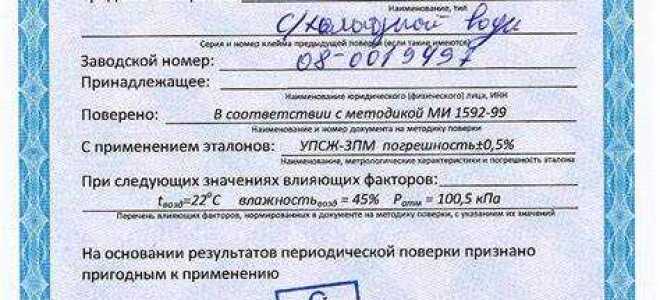 Наименование, тип
с/холодной воды
Серия и номер клейма предыдущей поверки (если такие имеются)
Заводской номер: 08-0019497
Принадлежащее:
Наименование юридического (физического) лица, ИНН
Поверено: В соответствии с методикой МИ 1592-99
Наименование и номер документа на методику поверки
С применением эталонов: УПСЖ-3ПМ погрешность±0,5%
Наименование, метрологические характеристики и погрешность эталона
При следующих значениях влияющих факторов:
tвозд=22°С влажностьвозд = 45% Ратм = 100,5 кПа
Перечень влияющих факторов, нормированных в документе на методику поверки, с указанием их значений
На основании результатов периодической поверки признано
пригодным к применению